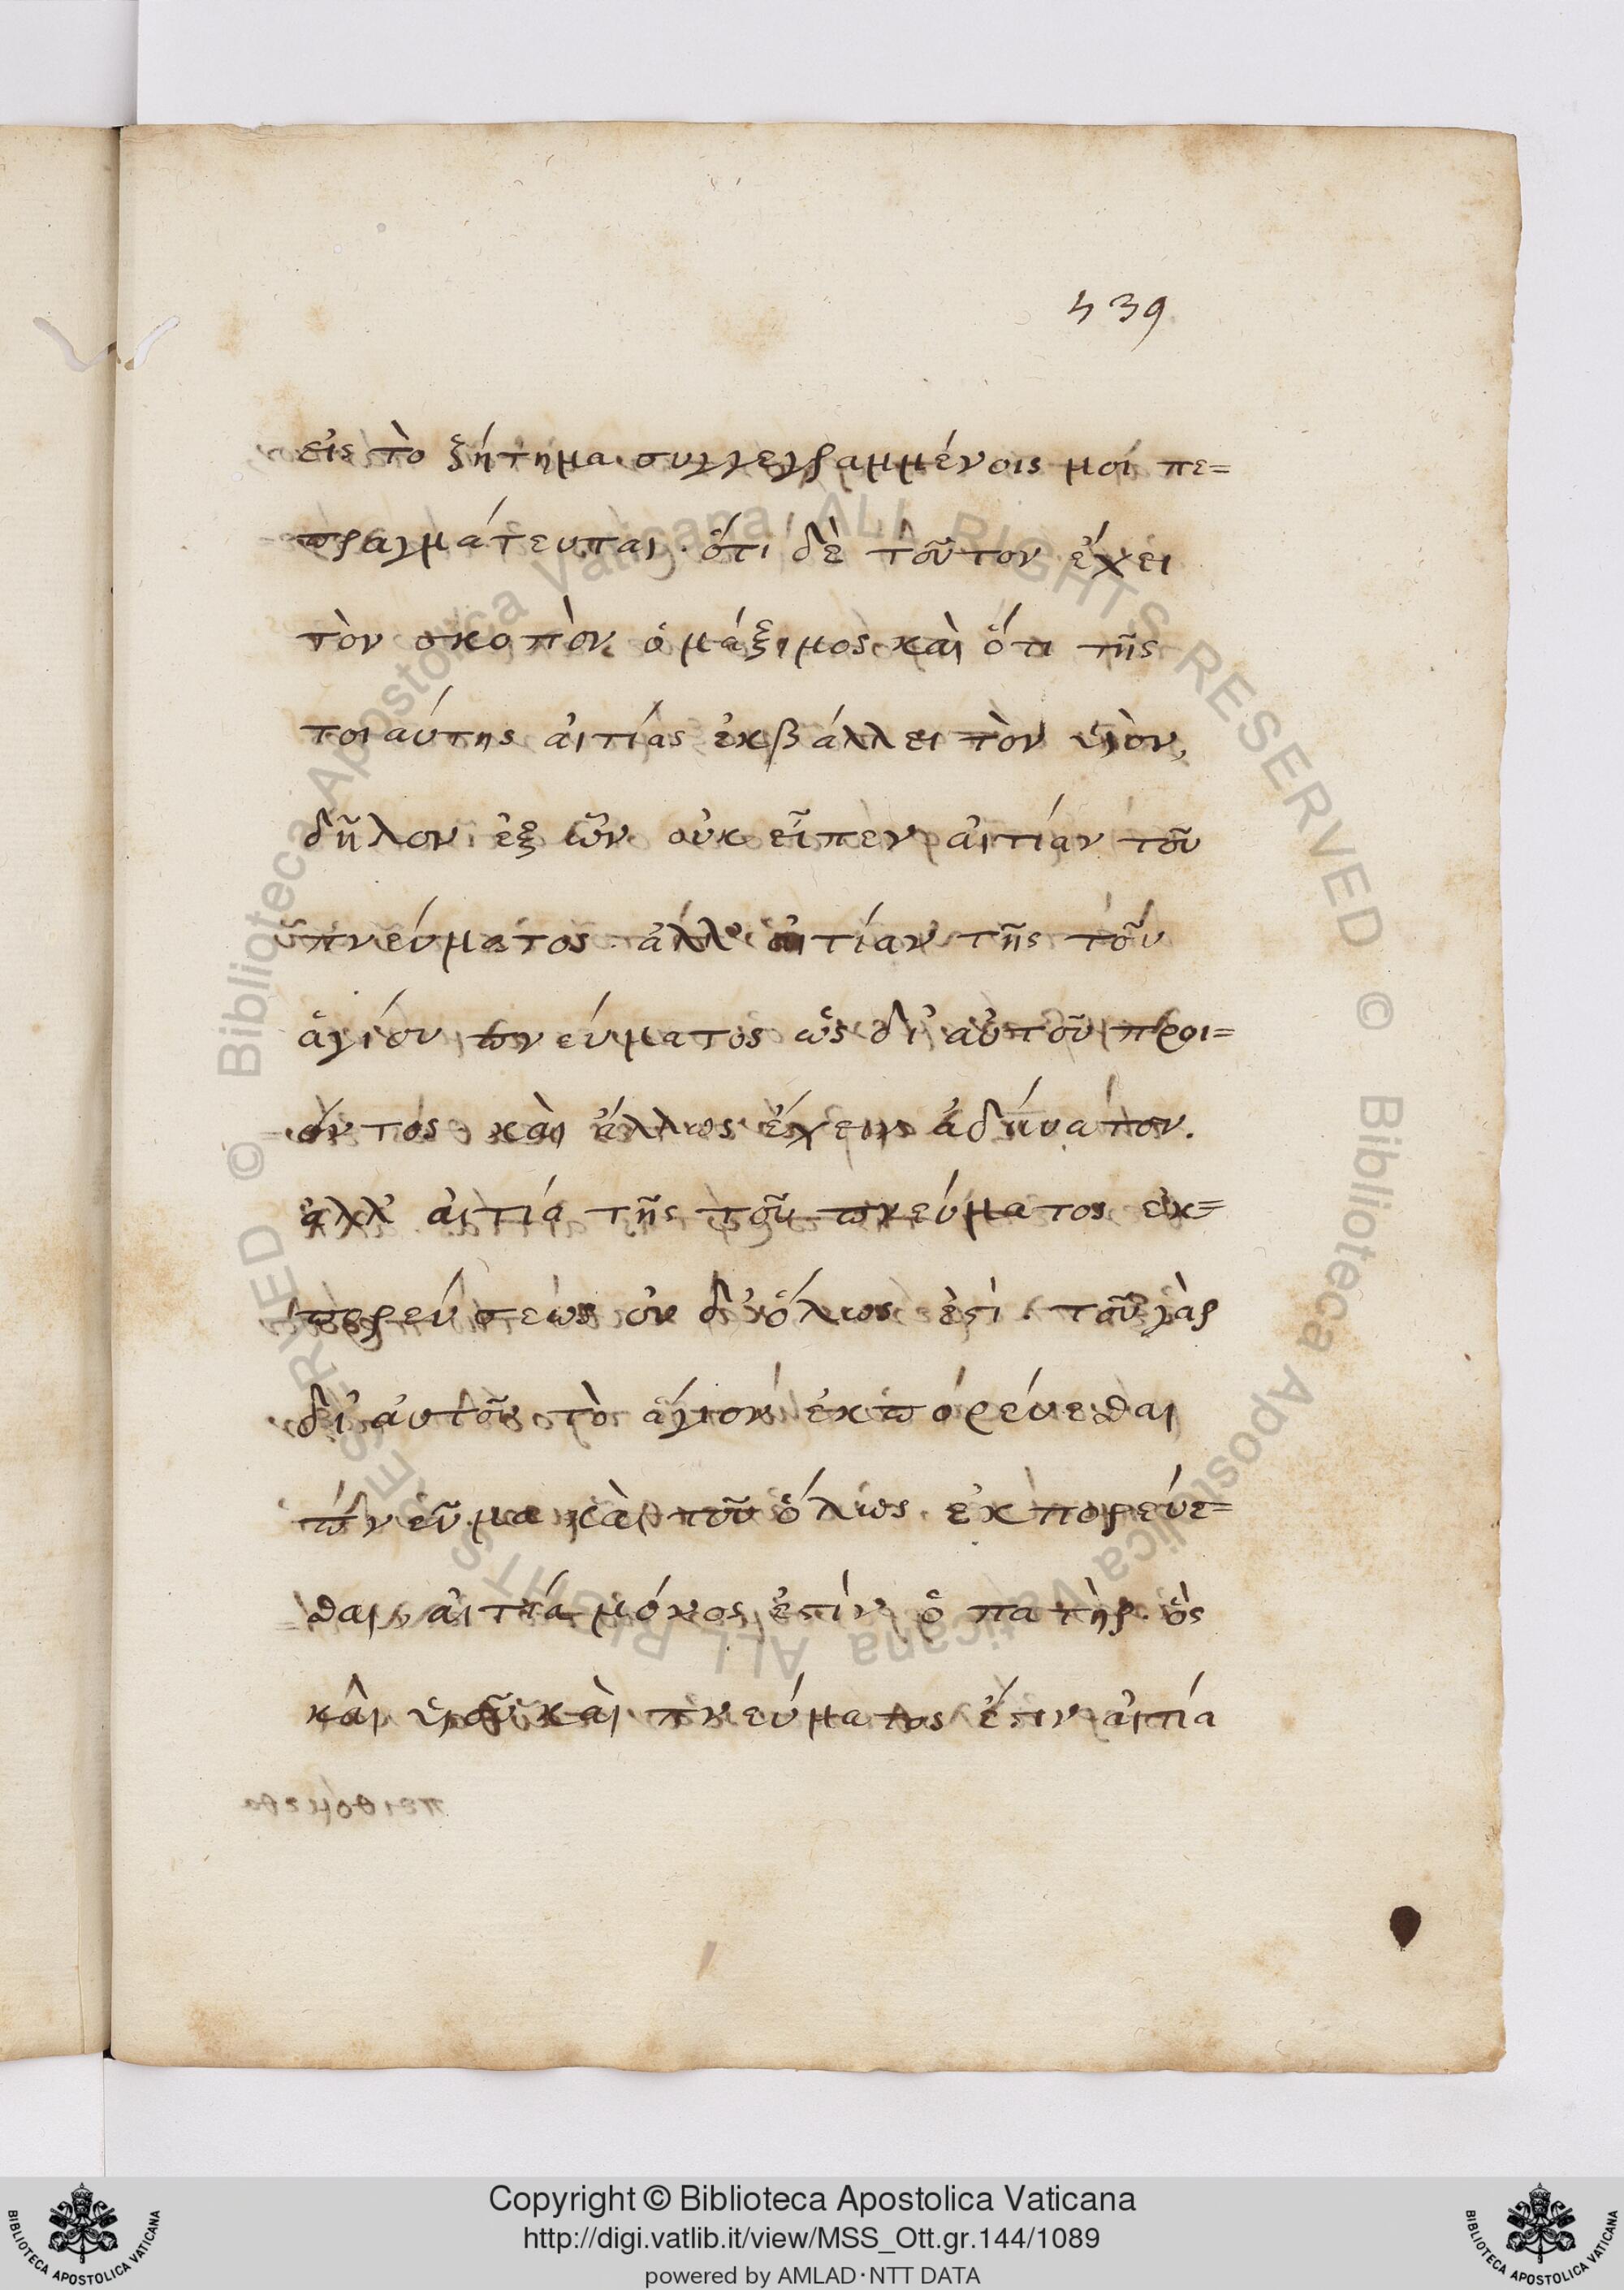 439
εἰς τὸ ζήτημα συγγεγραμμένοις μοί πε=
πραγμάτευται. ὅτι δὲ τοῦτον ἔχει
τὸν σκοπὸν ὁ μάξιμος καὶ ὅτι τῆς
τοιαύτης αἰτίας ἐκβάλλει τὸν υἱὸν,
δῆλον ἐξ ὧν οὐκ εἶπεν αἰτίαν τοῦ
πνεύματος. ἀλλ' αἰτίαν τῆς τοῦ
ἁγίου πνεύματος ὡς δι' αὐτοῦ προι=
όντος καὶ ἄλλως ἔχειν ἀδύνατον.
ἀλλ' αἰτία τῆς τοῦ πνεύματος ἐκ=
πορεύσεως οὐ δ' ὅλως ἐστὶ. τοῦ γὰρ
δι' αὐτοῦ τὸ ἅγιον ἐκπορεύεσθαι
πνεῦμα καὶ τοῦ ὅλως ἐκπορεύε=
σθαι, αἰτία μόνος ἐστὶν ὁ πατὴρ. ὃς
καὶ υἱοῦ καὶ πνεύματος ἐστιν αἰτία
© Biblioteca Apostolica Vaticana, ALL RIGHTS RESERVED © Biblioteca Apostolica Vaticana ALL RIGHTS RESERVED
Copyright © Biblioteca Apostolica Vaticana
http://digi.vatlib.it/view/MSS_Ott.gr.144/1089
powered by AMLAD·NTT DATA
BIBLIOTECA APOSTOLICA VATICANA
BIBLIOTECA APOSTOLICA VATICANA